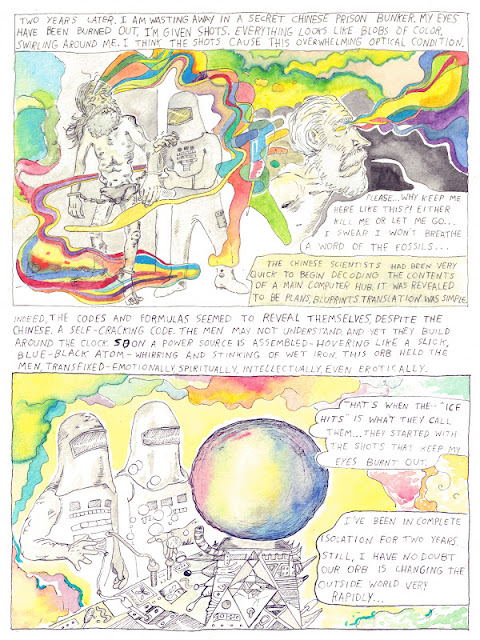 TWO YEARS LATER. I AM WASTING AWAY IN A SECRET CHINESE PRISON BUNKER. MY EYES
HAVE BEEN BURNED OUT, I'M GIVEN SHOTS. EVERYTHING LOOKS LIKE BLOBS OF COLOR,
SWIRLING AROUND ME. I THINK THE SHOTS CAUSE THIS OVERWHELMING OPTICAL CONDITION.
PLEASE...WHY KEEP ME
HERE LIKE THIS?! EITHER
KILL ME OR LET ME GO...
I SWEAR I WON'T BREATHE
A WORD OF THE FOSSILS...
THE CHINESE SCIENTISTS HAD BEEN VERY
QUICK TO BEGIN DECODING THE CONTENTS
OF A MAIN COMPUTER HUB. IT WAS REVEALED
TO BE PLANS, BLUPRINTS. TRANSLATION WAS SIMPLE.
INDEED, THE CODES AND FORMULAS SEEMED TO REVEAL THEMSELVES, DESPITE THE
CHINESE. A SELF-CRACKING CODE. THE MEN MAY NOT UNDERSTAND AND YET THEY BUILD
AROUND THE CLOCK. SOON A POWER SOURCE IS ASSEMBLED-HOVERING LIKE A SLICK,
BLUE-BLACK ATOM-WHIRRING AND STINKING OF WET IRON. THIS ORB HELD THE
MEN TRANSFIXED-EMOTIONALLY, SPIRITUALLY, INTELLECTUALLY, EVEN EROTICALLY.
THAT'S WHEN THE "ICE
HITS" IS WHAT THEY CALL
THEM...THEY STARTED WITH
THE SHOTS THAT KEEP MY
EYES BURNT OUT.
I'VE BEEN IN COMPLETE
ISOLATION FOR TWO YEARS.
STILL, I HAVE NO DOUBT
OUR ORB IS CHANGING THE
OUTSIDE WORLD VERY
RAPIDLY...